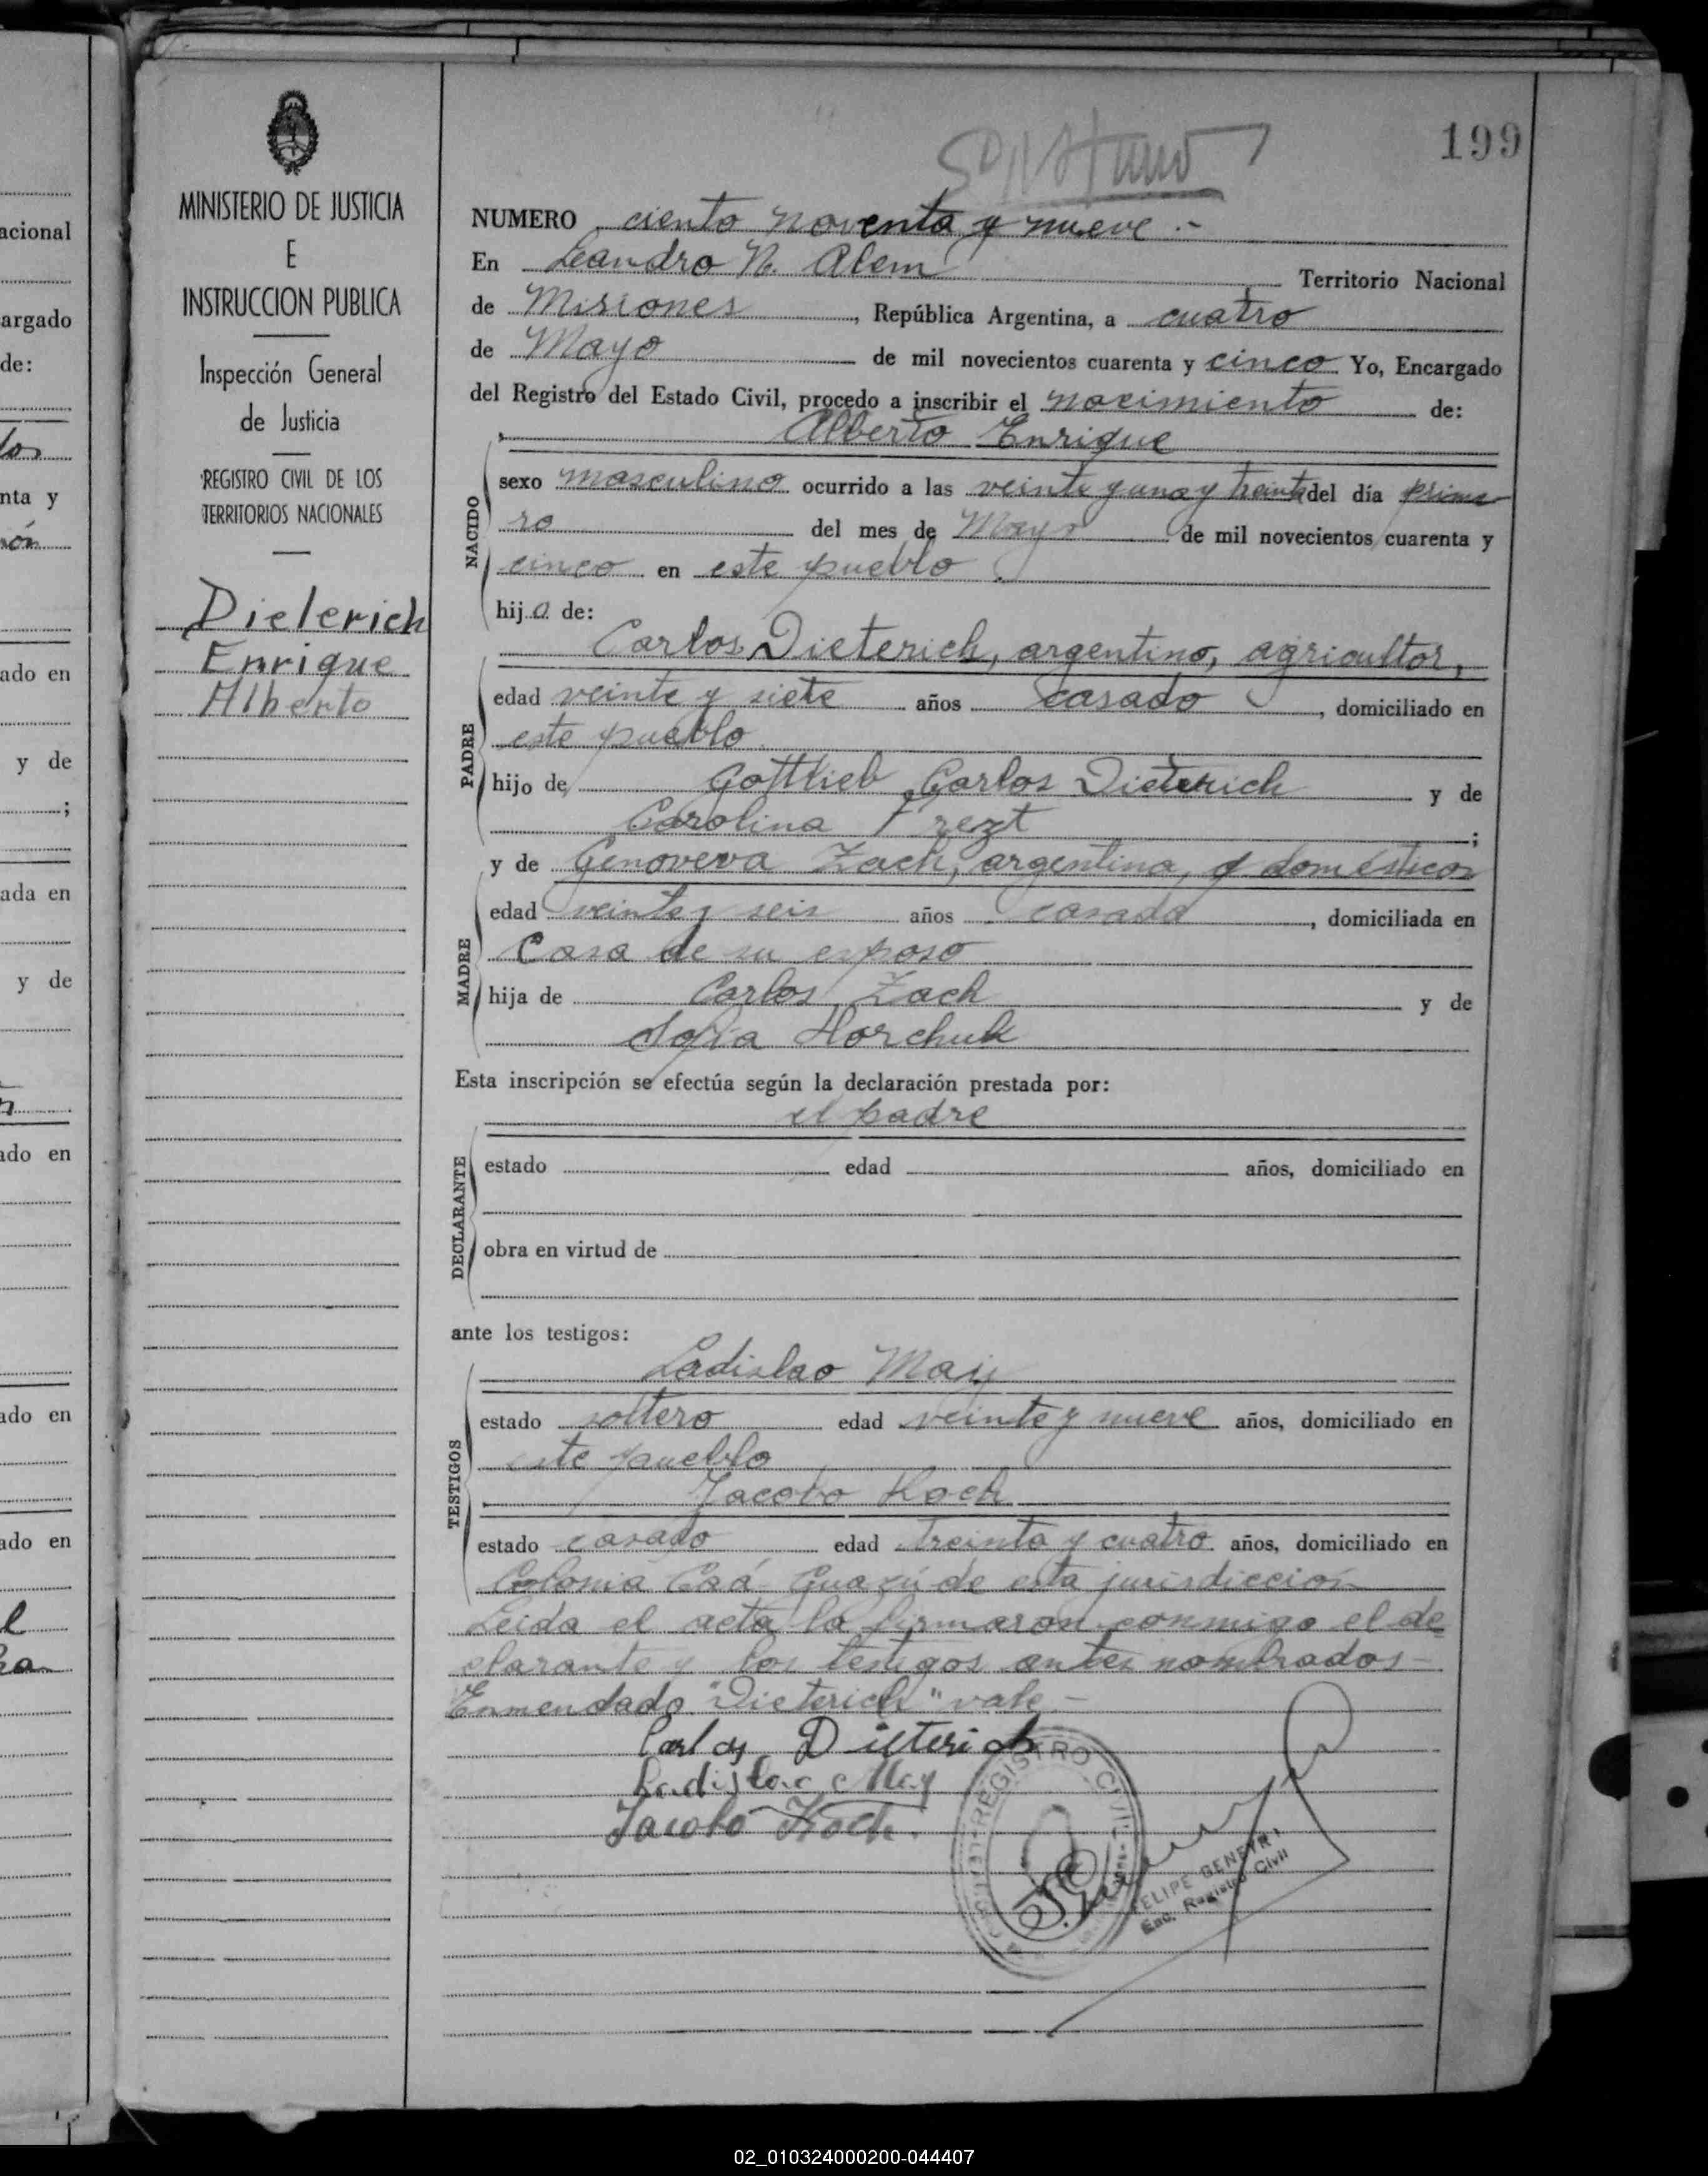 199
MINISTERIO DE JUSTICIA
E
INSTRUCCION PUBLICA
Inspección General
de Justicia
REGISTRO CIVIL DE LOS
TERRITORIOS NACIONALES
Dieterich
Enrique
Alberto
NUMERO ciento noventa y nueve.-
En Leandro N. Alem Territorio Nacional
de Misiones, República Argentina, a cuatro
de Mayo de mil novecientos cuarenta y cinco Yo, Encargado
del Registro del Estado Civil, procedo a inscribir el nacimiento de:
Alberto Enrique
NACIDO
sexo masculino ocurrido a las veinte y una y treinta del día prime
ro del mes de Mayo de mil novecientos cuarenta y
cinco en este pueblo
hijo de:
Carlos Dieterich, argentino, agricultor,
PADRE
edad veinte y siete años casado, domiciliado en
este pueblo
hijo de Gottlieb Carlos Dieterich y de
Carolina ;
y de Genoveva Zach, argentina, q domésticos
MADRE
edad veinte y seis años casada, domiciliada en
Casa de su esposo
hija de Carlos Zach y de
Sofia Horchuk
Esta inscripción se efectúa según la declaración prestada por:
el padre
DECLARANTE
estado edad años, domiciliado en
obra en virtud de
ante los testigos:
Ladislao May
TESTIGOS
estado soltero edad veinte y nueve años, domiciliado en
este pueblo
Jacobo Koch
estado casado edad treinta y cuatro años, domiciliado en
Colonia Caá Guazú de esta jurisdiccion
Leida el acta la firmaron conmigo el de
clarante y los testigos antes nombrados-
Enmendado "Dieterich" vale-
Carlos Dieterich
Ladislao May
Jacobo Koch.
REGISTRO CIVIL
FELIPE
Enc. Registro Civil
acional
argado
de:
nta y
ado en
y de
;
ada en
y de
ado en
ado en
ado en
02_010324000200-044407